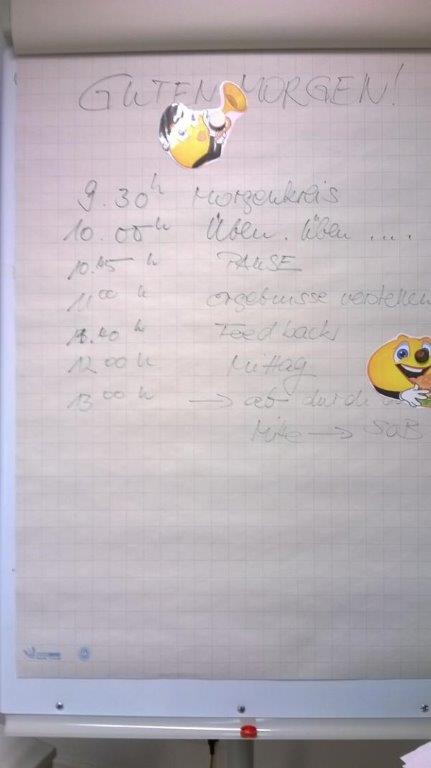 GUTEN MORGEN!
9.30h Morgenkreis
10.00h Üben. Üben ....
10.45 h PAUSE
11 00 h ergebnisse verstehen
11.40 h Feedback
12 00 h Mittag
13 00 h → ab durch
Mitte →